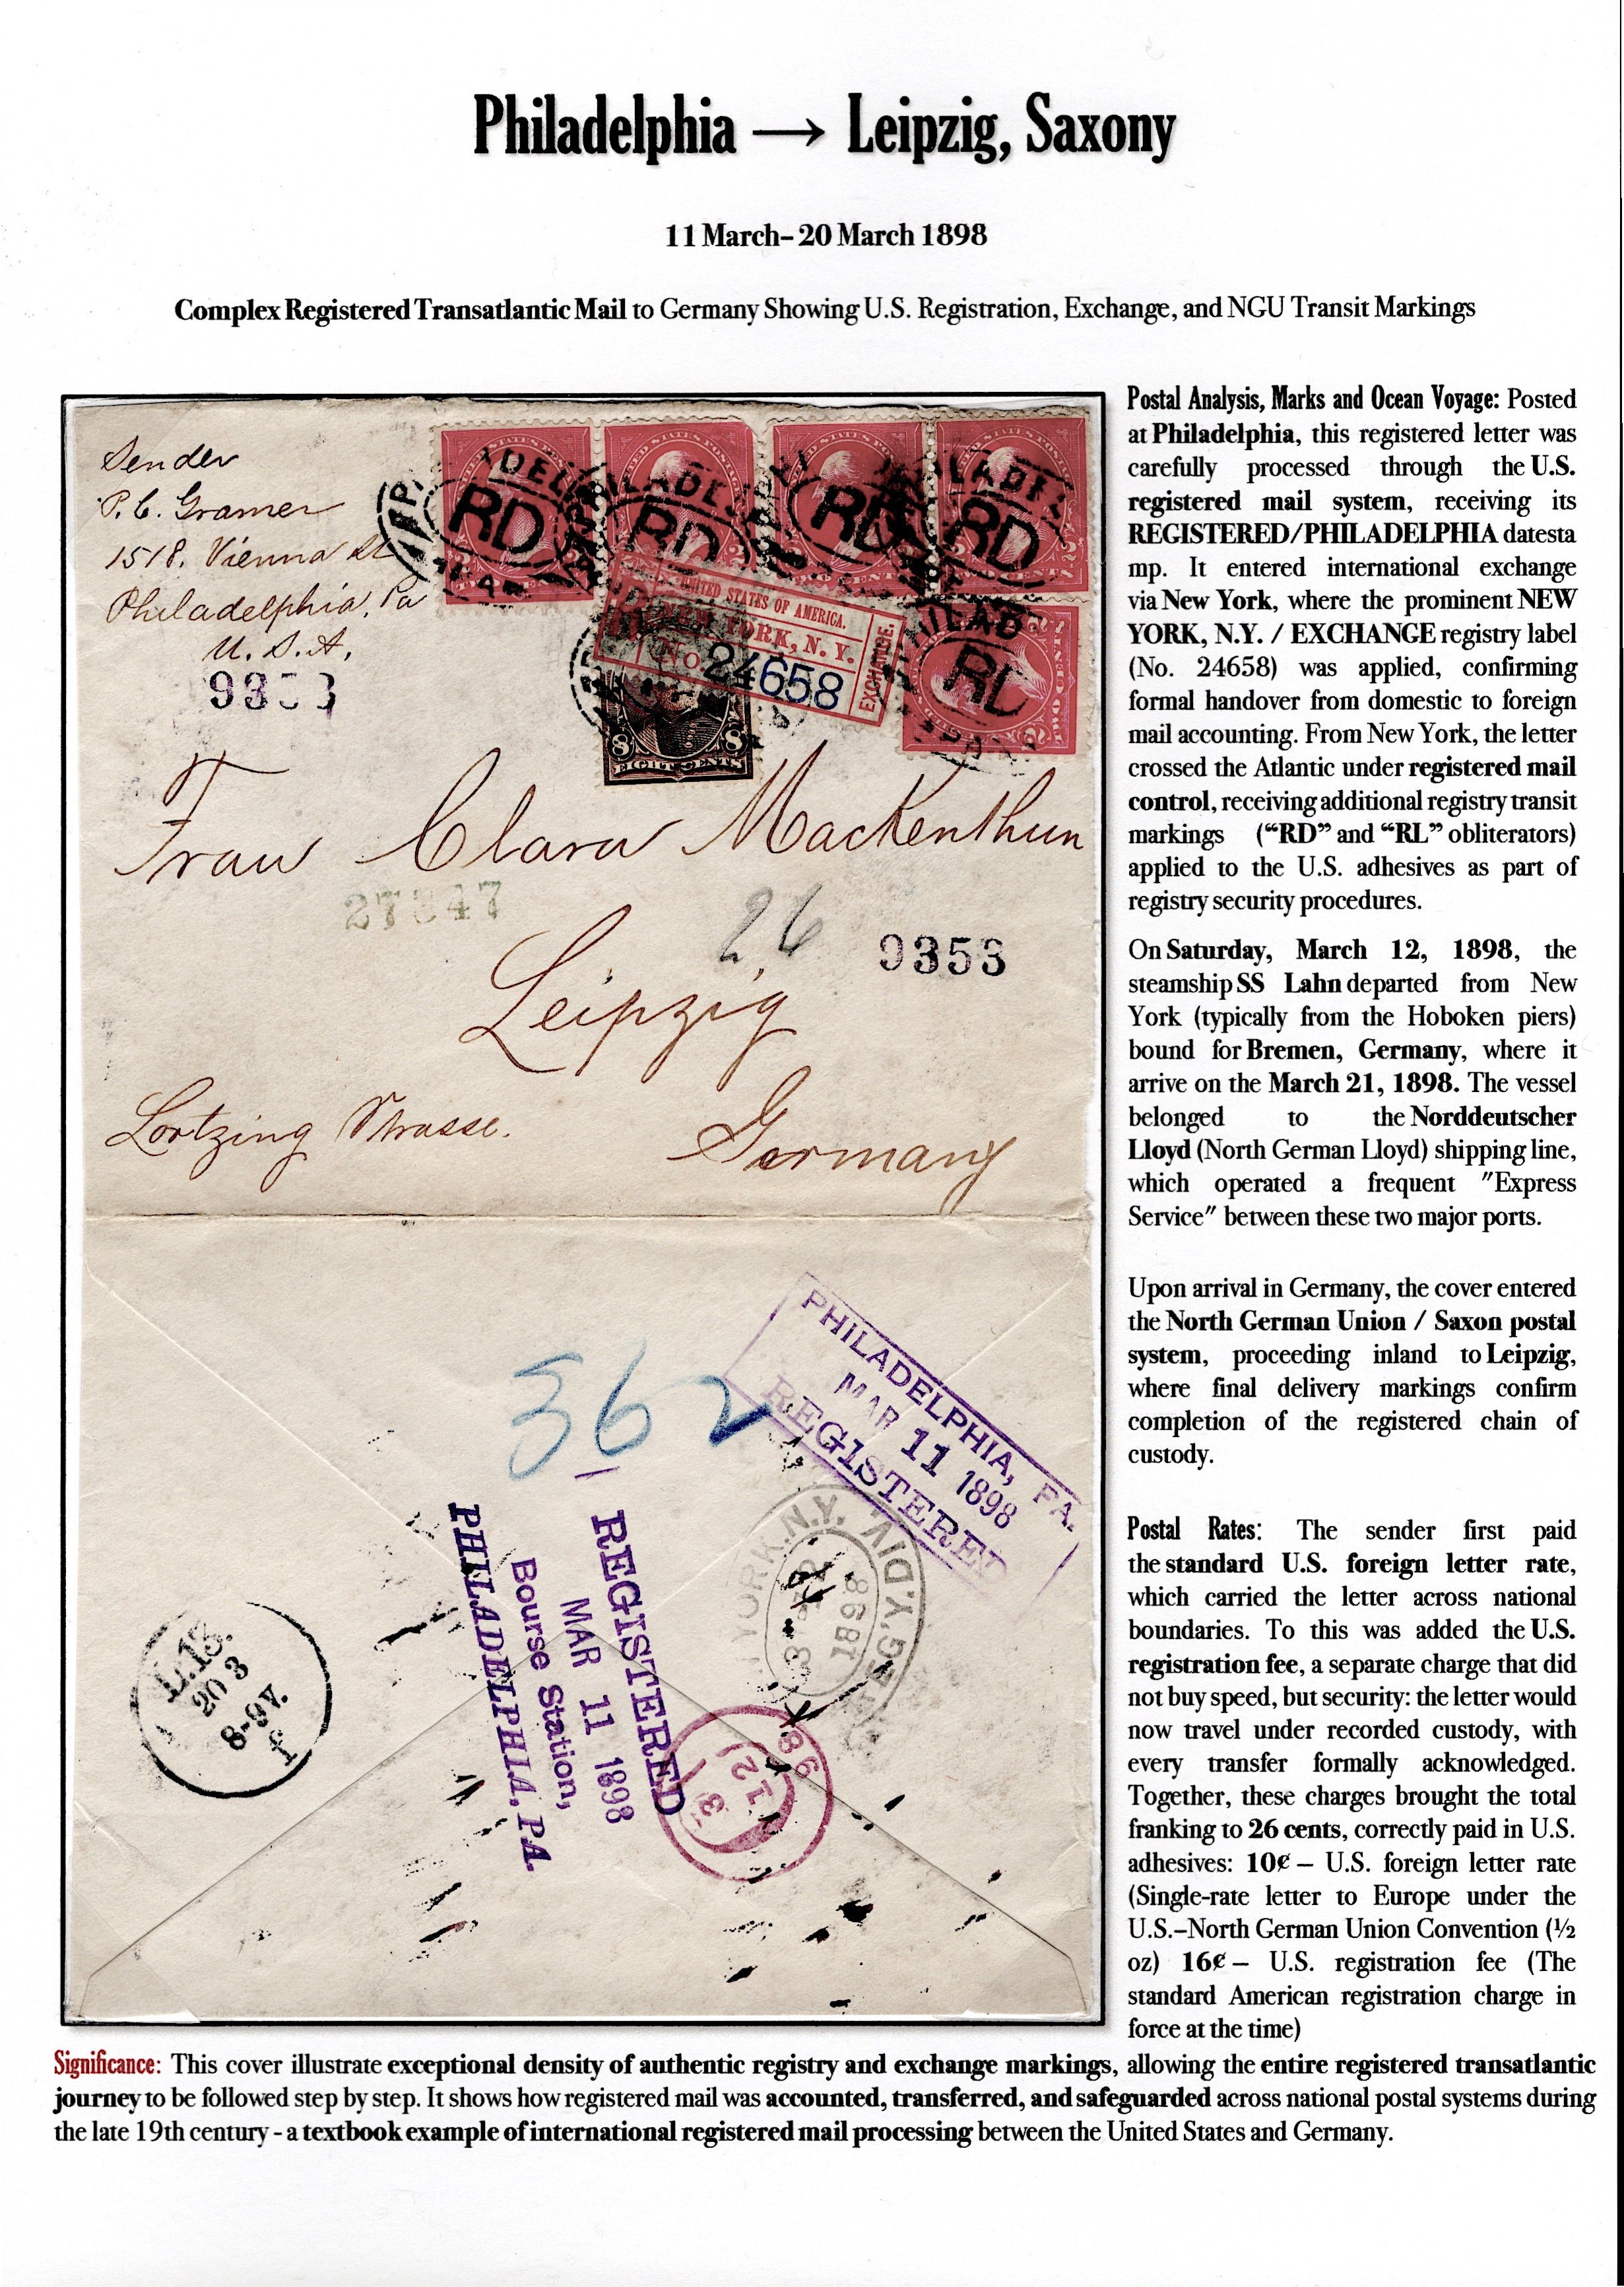 Philadelphia → Leipzig, Saxony
11 March– 20 March 1898
Complex Registered Transatlantic Mail to Germany Showing U.S. Registration, Exchange, and NGU Transit Markings
Sender
P. C. Gramer
1518. Vienna St
Philadelphia, Pa
U. S. A.
RD
RD
RD
RD
RD
UNITED STATES OF AMERICA.
NEW YORK, N. Y.
No. 24658
EXCHANGE.
8 8
EIGHT CENTS
Frau Clara Mackenthun
27847
26
9353
Leipzig
Lortzing Strasse.
Germany
362
PHILADELPHIA, PA.
MAR 11 1898
REGISTERED
REGISTERED
MAR 11 1898
Bourse Station,
PHILADELPHIA, PA.
YORK, N.Y. REG'Y. DIV.
1898
3
12
98
L.13.
20 3
8-9V.
f
Postal Analysis, Marks and Ocean Voyage: Posted
at Philadelphia, this registered letter was
carefully processed through the U.S.
registered mail system, receiving its
REGISTERED/PHILADELPHIA datesta
mp. It entered international exchange
via New York, where the prominent NEW
YORK, N.Y. / EXCHANGE registry label
(No. 24658) was applied, confirming
formal handover from domestic to foreign
mail accounting. From New York, the letter
crossed the Atlantic under registered mail
control, receiving additional registry transit
markings (“RD” and “RL” obliterators)
applied to the U.S. adhesives as part of
registry security procedures.
On Saturday, March 12, 1898, the
steamship SS Lahn departed from New
York (typically from the Hoboken piers)
bound for Bremen, Germany, where it
arrive on the March 21, 1898. The vessel
belonged to the Norddeutscher
Lloyd (North German Lloyd) shipping line,
which operated a frequent "Express
Service" between these two major ports.
Upon arrival in Germany, the cover entered
the North German Union / Saxon postal
system, proceeding inland to Leipzig,
where final delivery markings confirm
completion of the registered chain of
custody.
Postal Rates: The sender first paid
the standard U.S. foreign letter rate,
which carried the letter across national
boundaries. To this was added the U.S.
registration fee, a separate charge that did
not buy speed, but security: the letter would
now travel under recorded custody, with
every transfer formally acknowledged.
Together, these charges brought the total
franking to 26 cents, correctly paid in U.S.
adhesives: 10¢ – U.S. foreign letter rate
(Single-rate letter to Europe under the
U.S.–North German Union Convention (½
oz) 16¢ – U.S. registration fee (The
standard American registration charge in
force at the time)
Significance: This cover illustrate exceptional density of authentic registry and exchange markings, allowing the entire registered transatlantic
journey to be followed step by step. It shows how registered mail was accounted, transferred, and safeguarded across national postal systems during
the late 19th century - a textbook example of international registered mail processing between the United States and Germany.